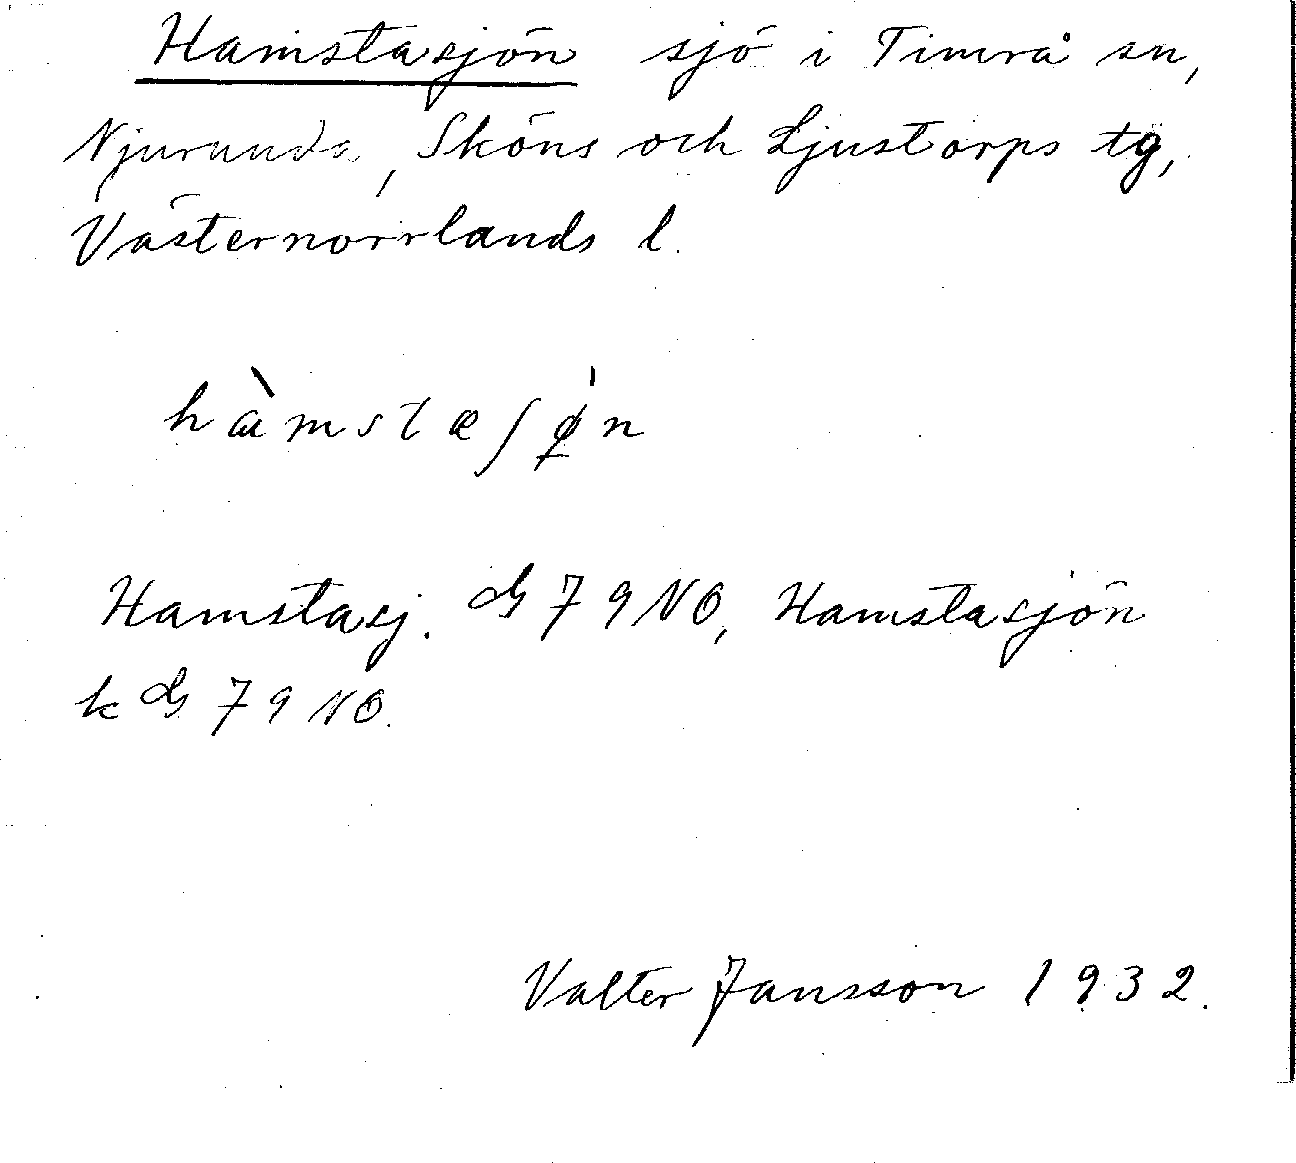 Hamstasjön sjö i Timrå sn,
Njurunda, Sköns och Ljustorps tg,
Västernorrlands l.
hàmstaʃø̀n
Hamstasj. GS 79 NO, Hamstasjön
k GS 79 NO.
Valter Jansson 1932.